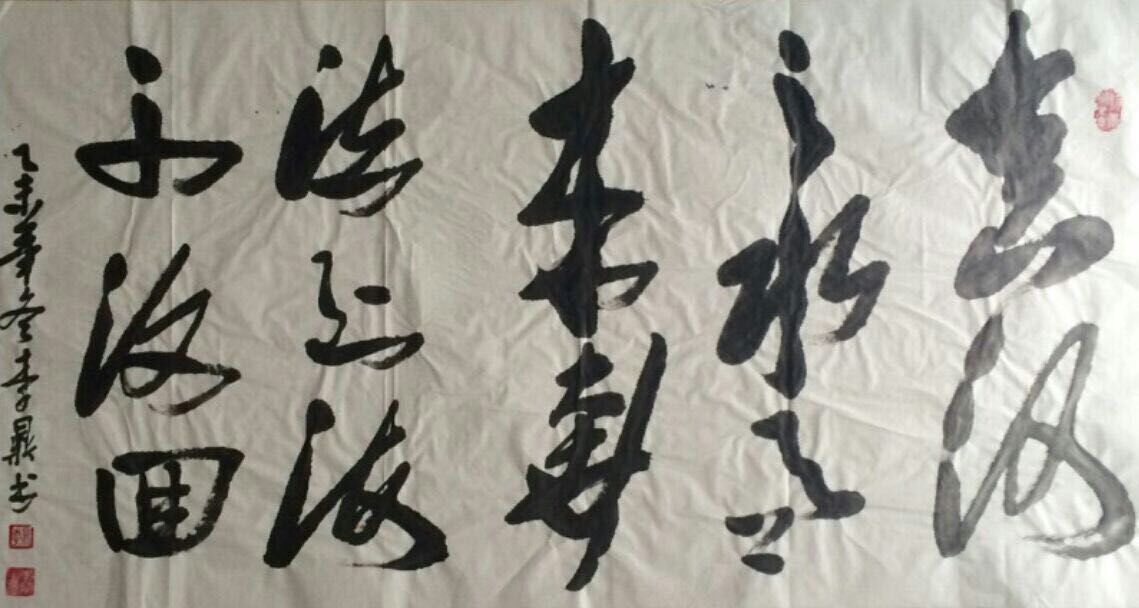 黄河
之水天上
来奔
流到海
不復回
乙未年冬李鼎书